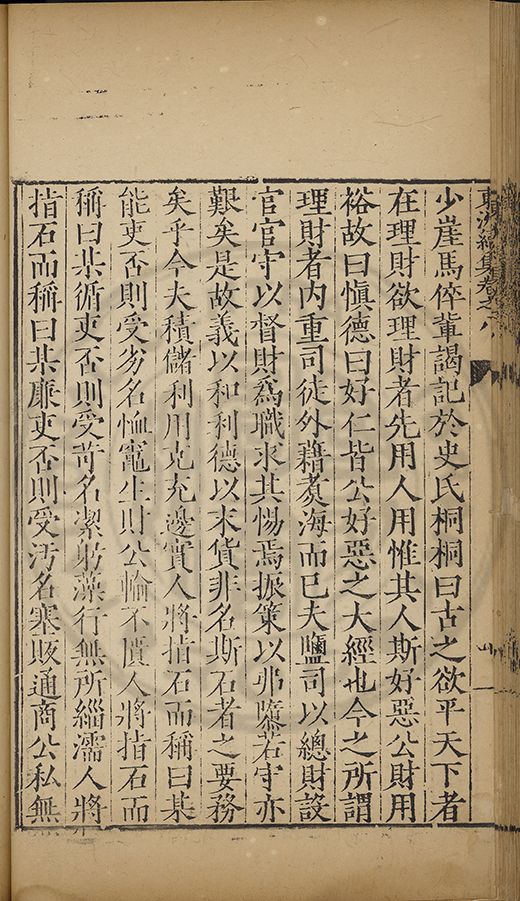 集卷之八
少崖馬倅輩謁記於史氏桐桐曰古之欲平天下者
在理財欲理財者先用人用惟其人斯好惡公財用
裕故曰慎德曰好仁皆公好惡之大經也今之所謂
理財者内重司徒外藉煑海而已夫鹽司以總財設
官官守以督財爲職求其惕焉振策以弗隳若守亦
艱矣是故義以和利德以末貨非名斯石者之要務
矣乎今夫積儲利用克充邊實人將指石而稱曰某
能吏否則受劣名恤竈生財公輸不匱人將指石而
稱曰某循吏否則受苛名潔躬藻行無所緇濡人將
指石而稱曰某廉吏否則受汚名塞販通商公私無